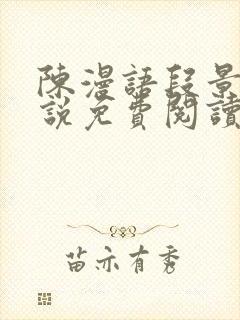 陳漫語段景
說免費閱讀
苗亦有秀